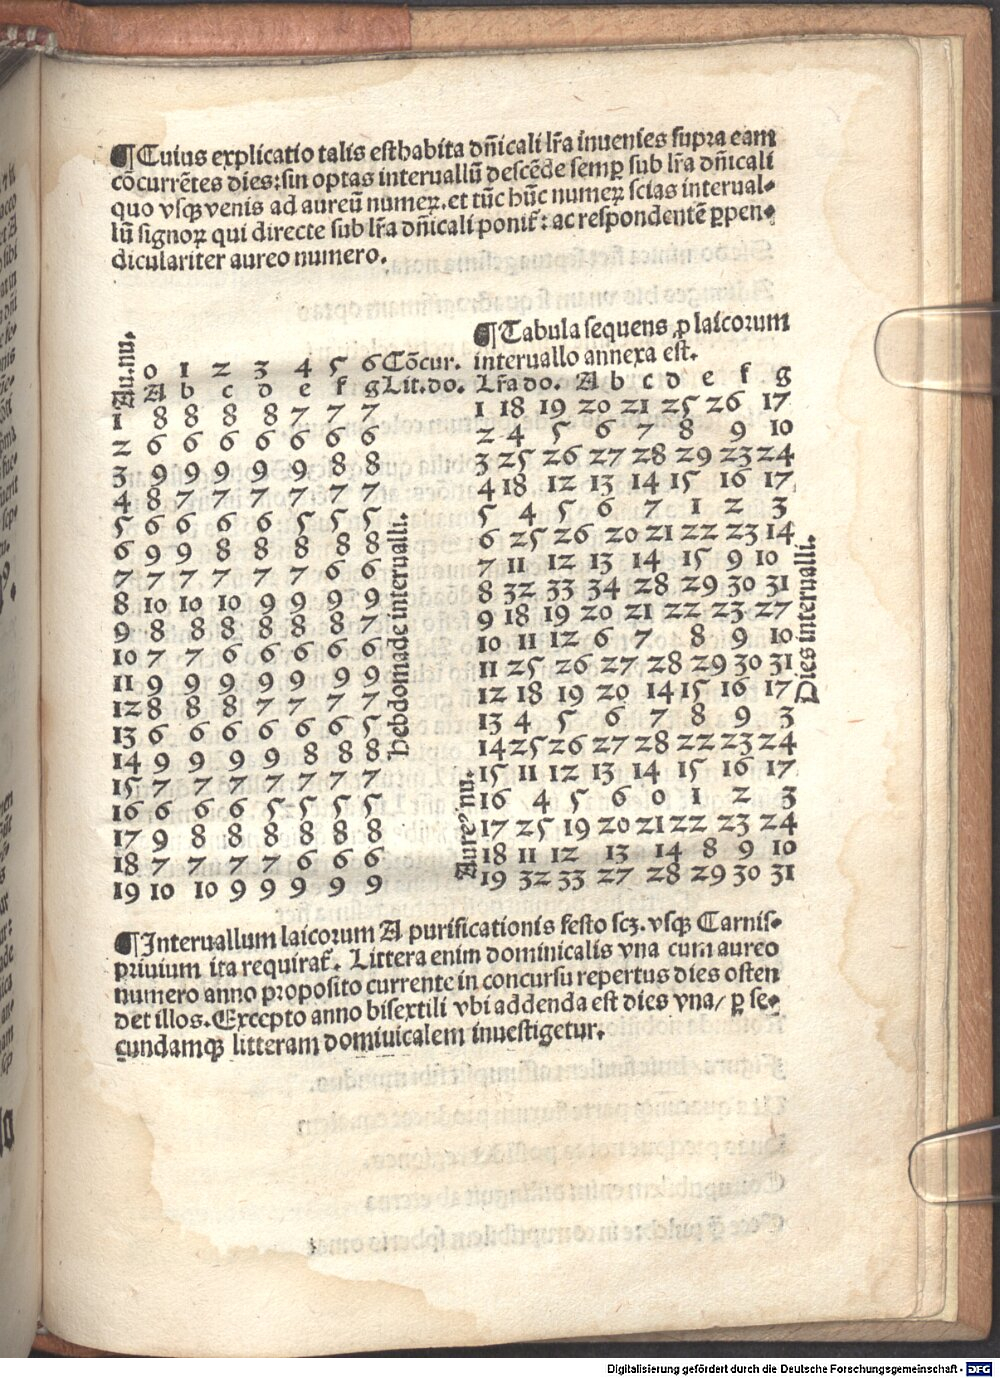 ¶Cuius explicatio talis est habita dn̄icali lr̄a inuenies supra eam
cōcurrētes dies: sin optas interuallū descēde semꝑ sub lr̄a dn̄icali
quo vsqꝫ venis ad aureū numeꝝ. et tūc hūc numeꝝ scias interual⸗
lū signoꝝ qui directe sub lr̄a dn̄icali ponit᷑: ac respondentē ꝑpen⸗
diculariter aureo numero.
Au.nu.
0 1 2 3 4 5 6 Cōcur.
A b c d e f g Lit.do.
1 8 8 8 8 7 7 7
2 6 6 6 6 6 6 6
3 9 9 9 9 9 8 8
4 8 7 7 7 7 7 7
5 6 6 6 6 5 5 5
6 9 9 8 8 8 8 8
7 7 7 7 7 7 6 6
8 10 10 10 9 9 9 9
9 8 8 8 8 8 8 7
10 7 7 6 6 6 6 6
11 9 9 9 9 9 9 9
12 8 8 8 7 7 7 7
13 6 6 6 6 6 6 5
14 9 9 9 9 8 8 8
15 7 7 7 7 7 7 7
16 6 6 6 5 5 5 5
17 9 8 8 8 8 8 8
18 7 7 7 7 6 6 6
19 10 10 9 9 9 9 9
Hebdomade interualli.
¶Tabula sequens ꝓ laicorum
interuallo annexa est.
Lr̄a do. A b c d e f g
1 18 19 20 21 25 26 17
2 4 5 6 7 8 9 10
3 25 26 27 28 29 23 24
4 18 12 13 14 15 16 17
5 4 5 6 7 1 2 3
6 25 26 20 21 22 23 14
7 11 12 13 14 15 9 10
8 32 33 34 28 29 30 31
9 18 19 20 21 22 23 27
10 11 12 6 7 8 9 10
11 25 26 27 28 29 30 31
12 18 19 20 14 15 16 17
13 4 5 6 7 8 9 3
14 25 26 27 28 22 23 24
15 11 12 13 14 15 16 17
16 4 5 6 0 1 2 3
17 25 19 20 21 22 23 24
18 11 12 13 14 8 9 10
19 32 33 27 28 29 30 31
Aureꝰ nu.
Dies interualli.
¶Interuallum laicorum A purificationis festo scꝫ. vsqꝫ Carnis⸗
priuium ita requirat᷑. Littera enim dominicalis vna cum aureo
numero anno proposito currente in concursu repertus dies osten
det illos. Excepto anno bisextili vbi addenda est dies vna/ ꝑ se⸗
cundamqꝫ litteram domiuicalem inuestigetur.
Digitalisierung gefördert durch die Deutsche Forschungsgemeinschaft - DFG